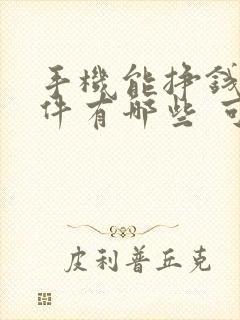 手機能掙錢
件有哪些 可
皮利普丘克